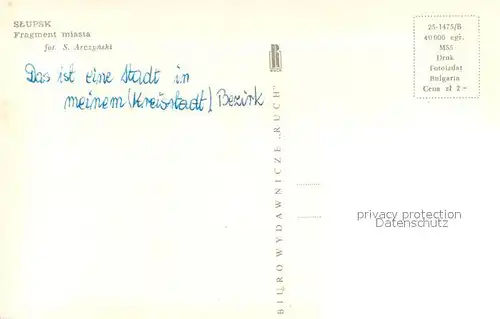 SŁUPSK
Fragment miasta
fot. S. Arczyński
Das ist eine Stadt in
meinem (Kreisstadt) Bezirk
BIURO WYDAWNICZE „RUCH"
25-1475/B
40 000 egz.
M55
Druk
Fotoizdat
Bulgaria
Cena zł 2 =
privacy protection
Datenschutz